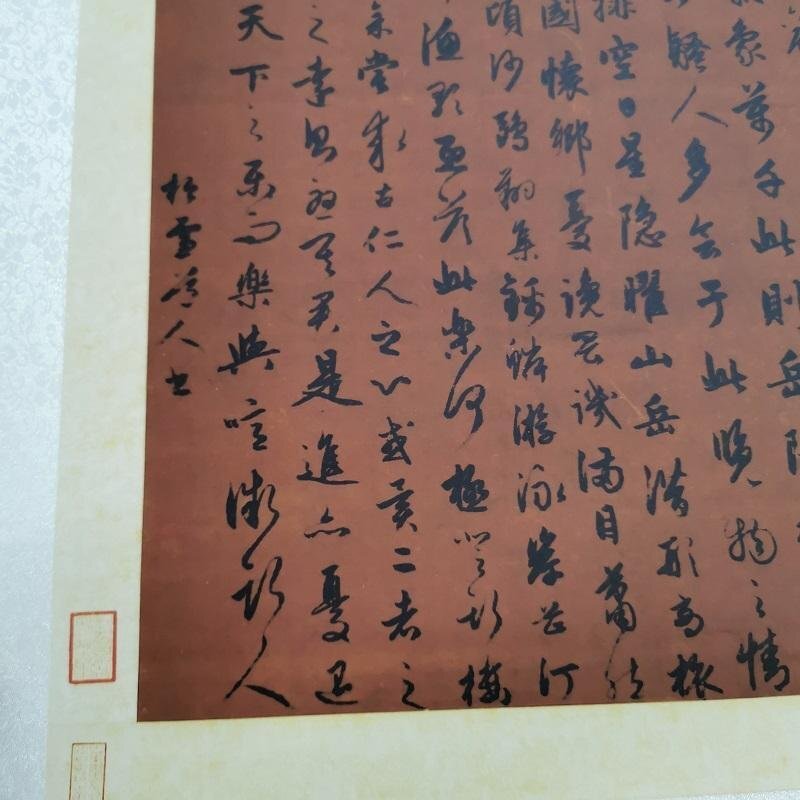 象萬千此則岳
騷人多會于此覽物之情
排空日星隐曜山岳潛形商旅
國懷鄉憂讒畏譏滿目蕭然
頃沙鷗翔集錦鱗游泳岸芷汀
漁歌互答此樂何極登斯樓
余嘗求古仁人之心或異二者之
之其君是進亦憂退
天下之樂而樂與噫微斯人
松雪道人書